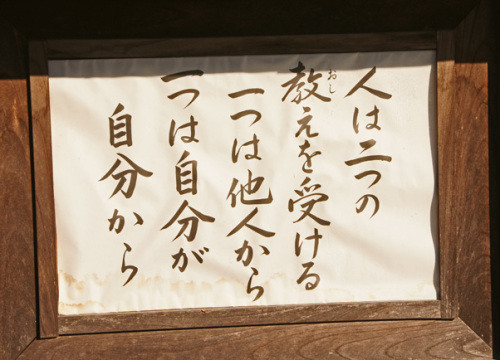 人は二つの
教えを受ける
おし
一つは他人から
一つは自分が
自分から